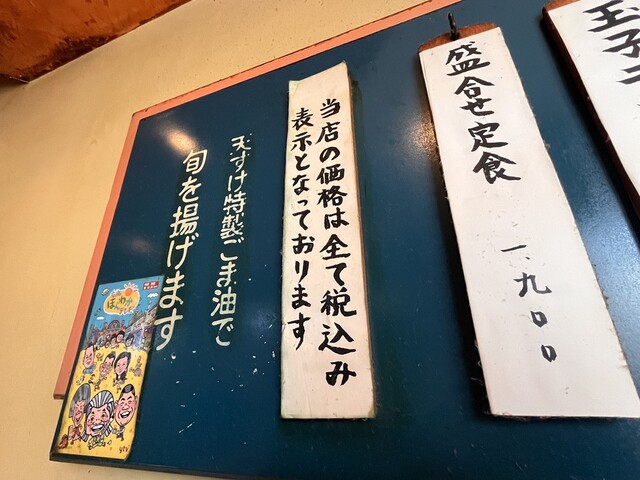 玉子
盛合せ定食 一、九〇〇
当店の価格は全て税込み
表示となっております
天すけ特製ごま油で
旬を揚げます